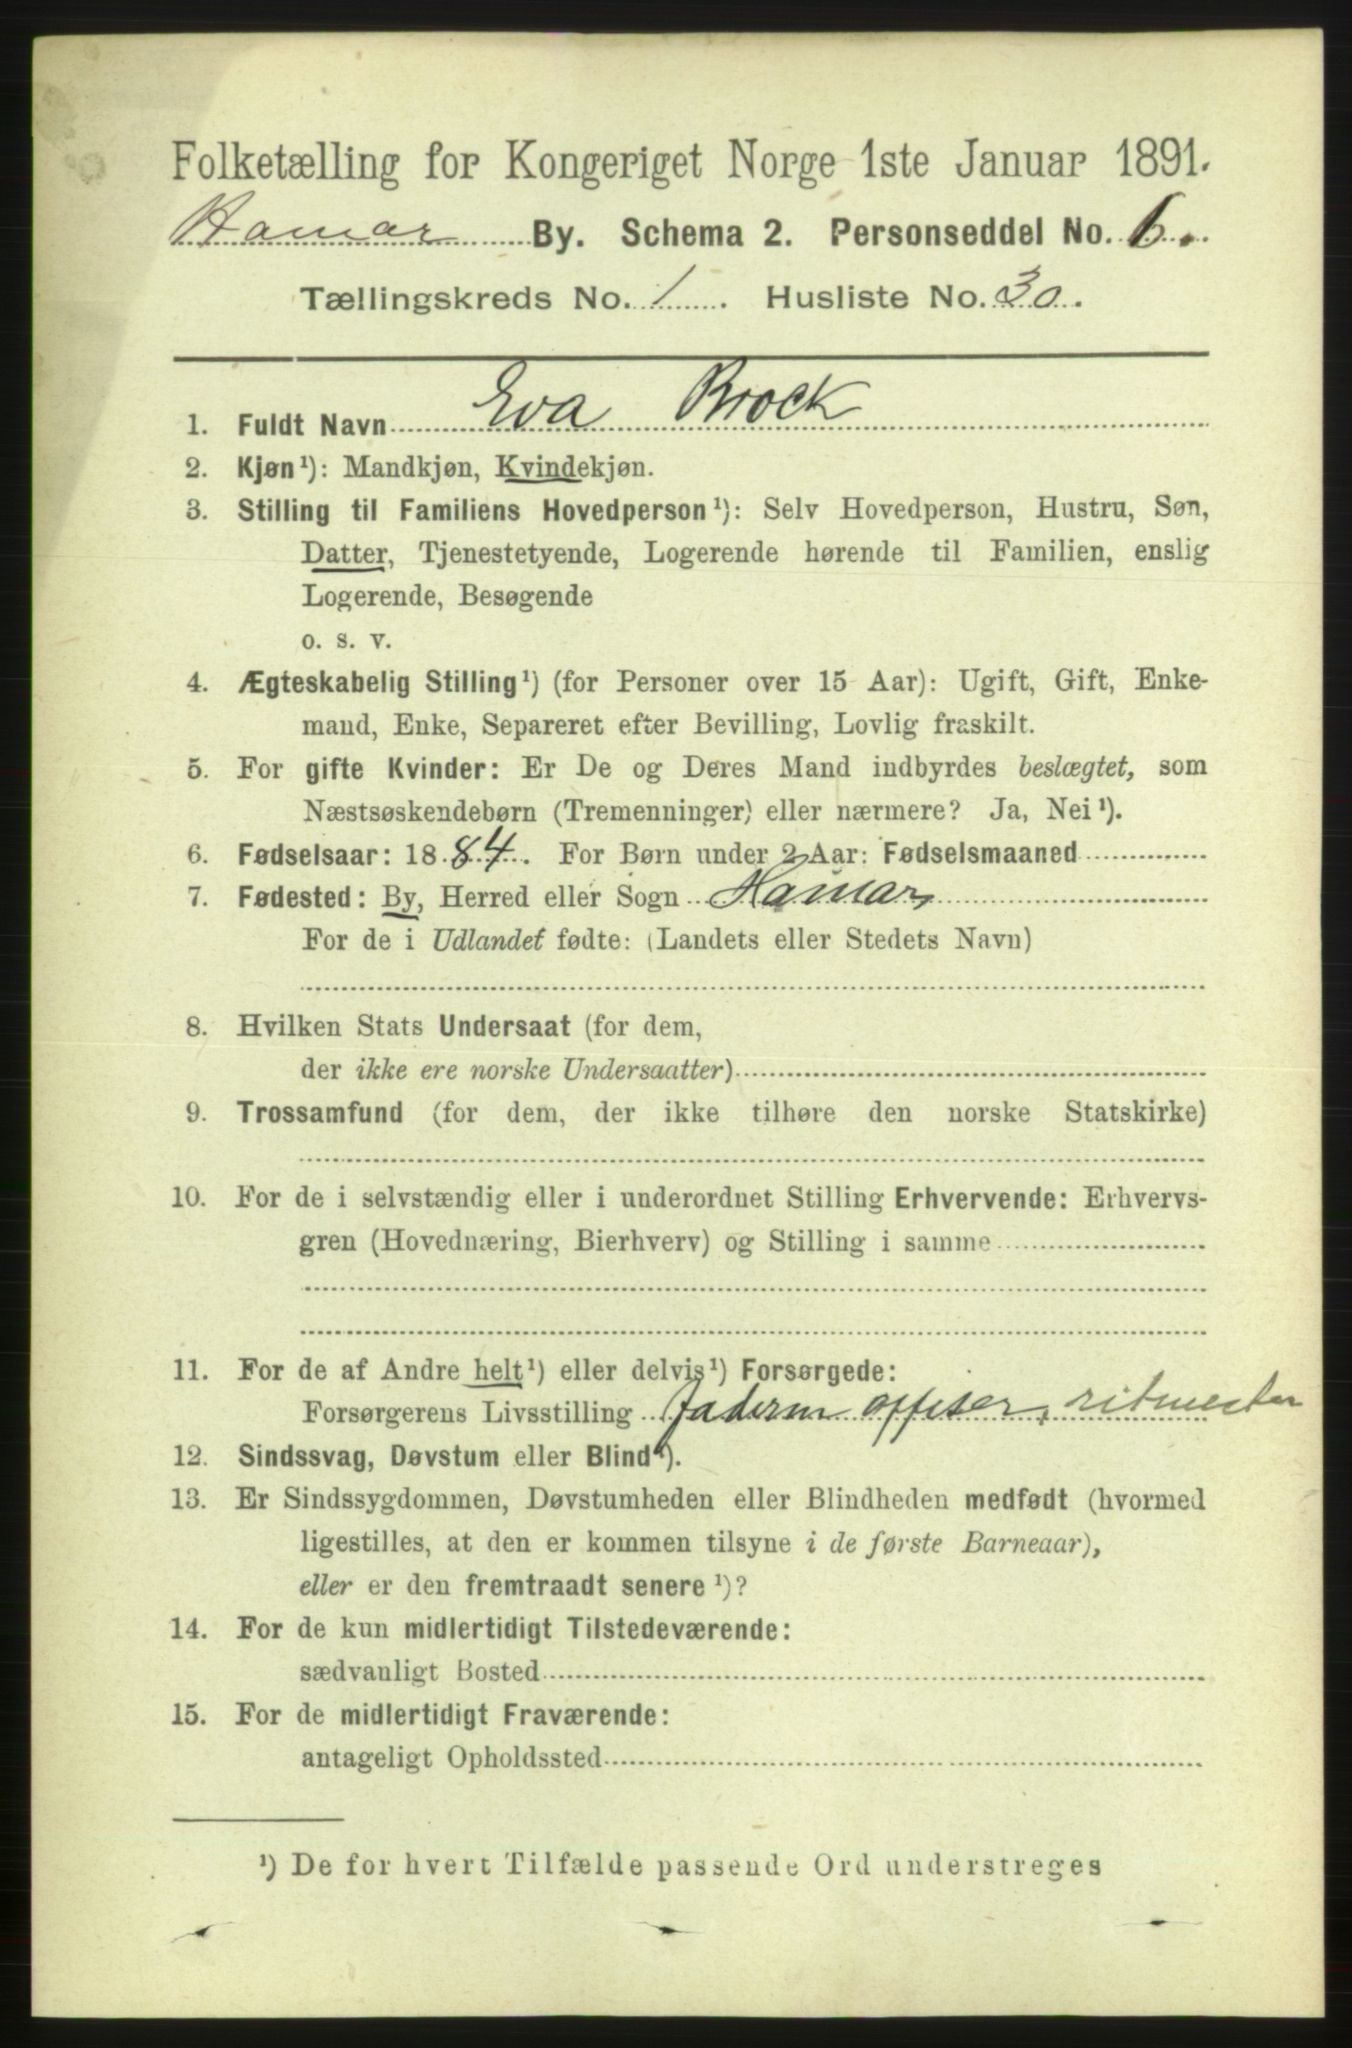 Folketælling for Kongeriget Norge 1ste Januar 1891.
Hamar By. Schema 2. Personseddel No. 6.
Tællingskreds No. 1. Husliste No. 30.
1. Fuldt Navn Eva Brock
2. Kjøn¹): Mandkjøn, Kvindekjøn.
3. Stilling til Familiens Hovedperson¹): Selv Hovedperson, Hustru, Søn,
Datter, Tjenestetyende, Logerende hørende til Familien, enslig
Logerende, Besøgende
o. s. v.
4. Ægteskabelig Stilling¹) (for Personer over 15 Aar): Ugift, Gift, Enke-
mand, Enke, Separeret efter Bevilling, Lovlig fraskilt.
5. For gifte Kvinder: Er De og Deres Mand indbyrdes beslægtet, som
Næstsøskendebørn (Tremenninger) eller nærmere? Ja, Nei¹).
6. Fødselsaar: 1884. For Børn under 2 Aar: Fødselsmaaned
7. Fødested: By, Herred eller Sogn Hamar
For de i Udlandet fødte: (Landets eller Stedets Navn)
8. Hvilken Stats Undersaat (for dem,
der ikke ere norske Undersaatter)
9. Trossamfund (for dem, der ikke tilhøre den norske Statskirke)
10. For de i selvstændig eller i underordnet Stilling Erhvervende: Erhvervs-
gren (Hovednæring, Bierhverv) og Stilling i samme
11. For de af Andre helt¹) eller delvis¹) Forsørgede:
Forsørgerens Livsstilling faderen offiser, ritmester
12. Sindssvag, Døvstum eller Blind¹).
13. Er Sindssygdommen, Døvstumheden eller Blindheden medfødt (hvormed
ligestilles, at den er kommen tilsyne i de første Barneaar),
eller er den fremtraadt senere¹)?
14. For de kun midlertidigt Tilstedeværende:
sædvanligt Bosted
15. For de midlertidigt Fraværende:
antageligt Opholdssted
¹) De for hvert Tilfælde passende Ord understreges